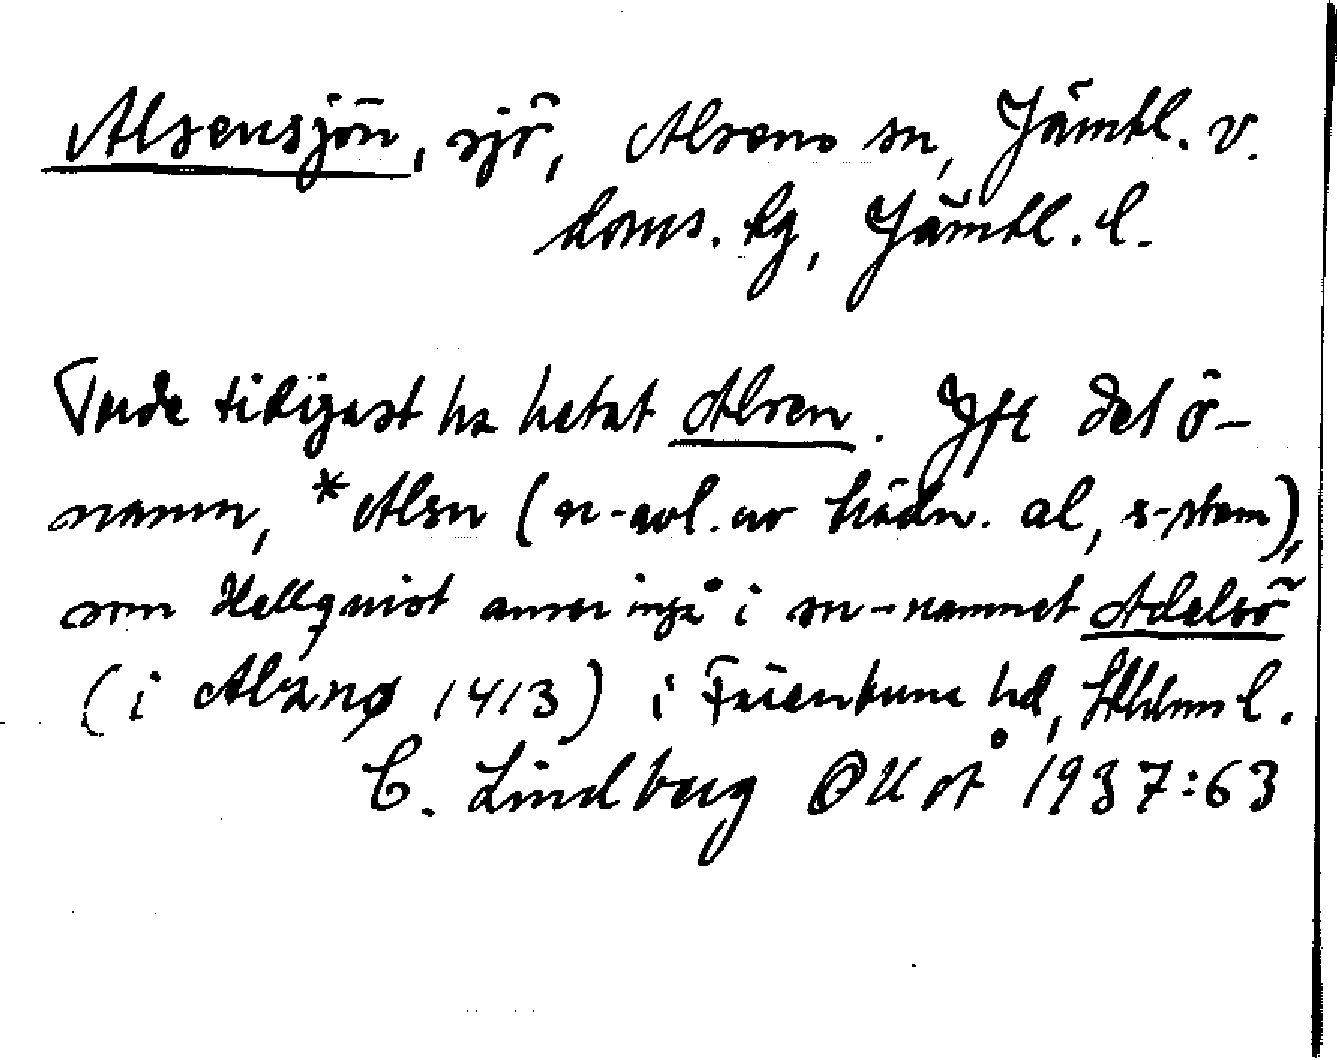 Alsensjön, sjö, Alsens sn, Jämtl. v.
doms. tg, Jämtl. l.
Torde tidigast ha hetat Alsen. Jfr det ö-
namn, *Alsn (n-avl. av trädn. al, s-stam),
som Hellquist anser ingå i sn-namnet Adelsö
(i Alsnø 1413) i Färentuna hd, Sthlms l.
C. Lindberg 1937:63